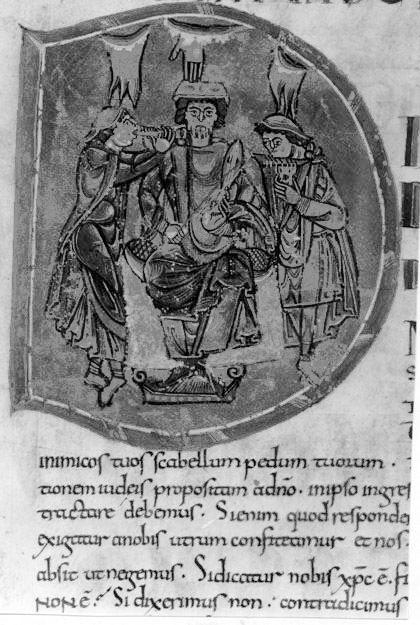 inimicos tuos scabellum pedum tuorum ·
tionem iudeis propositam a dño · in ipso ingres
tractare debemus · Si enim quod responde
exigatur a nobis utrum confiteamur et nos
absit ut negemus · Si dicatur nobis xp̄c ē · fi
NON ē · Si dixerimus non · contradicimus